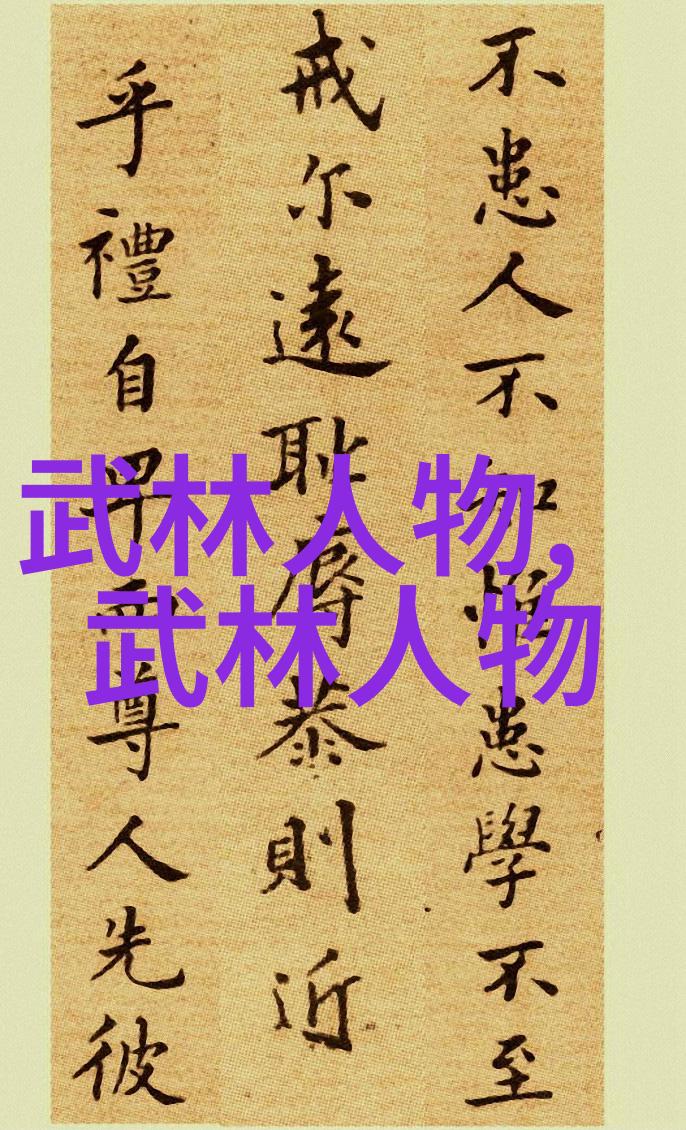 不患人不知惟患學不至
戒尔遠恥辱恭則近
乎禮自卑而尊人先彼
武林人物,
武林人物